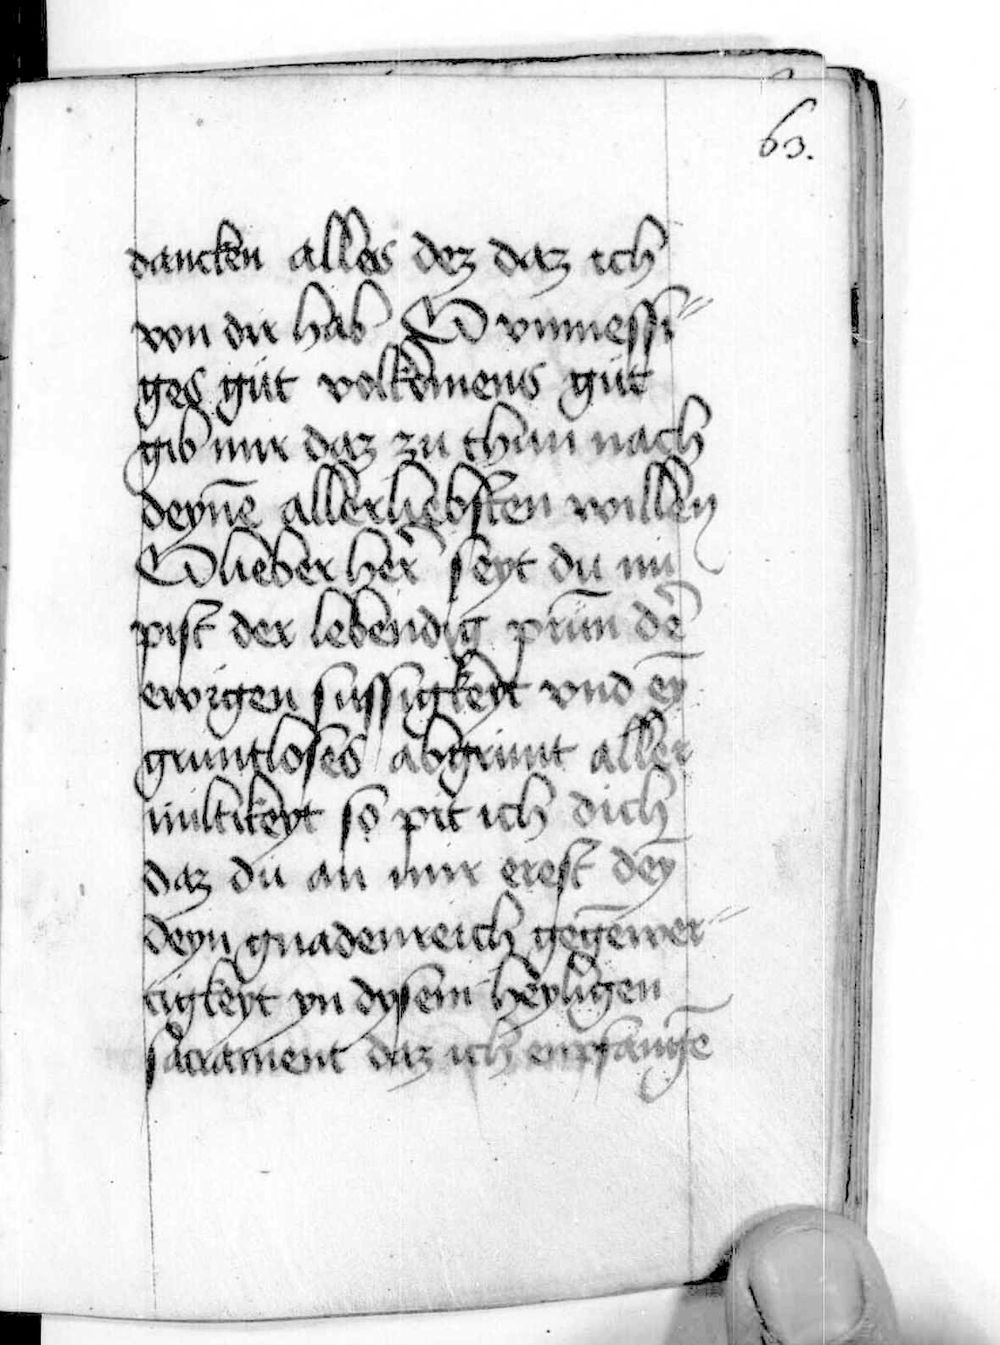 63.
dancken alles dez daz ich
von dir hab O vnmessi-
ges gut volkomens gut
gib mir daz zu thun nach
deyne͂ allerliebsten willen
O lieber her seyt du nu
pist der lebendig prun͂ de͂
ewigen sussigkeyt vnd ey͂
gruntloses abgrunt aller
miltikeyt so pit ich dich
daz du an mir erest dey͂
deyn gnadenreich gege͂wer-
tigkeyt yn dysem heyligen
sacrament daz ich empfange͂